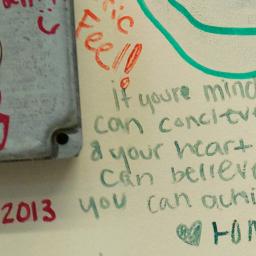 Feel!!
If youre mind
can conciev
& your heart
can believe
you can achi
2013